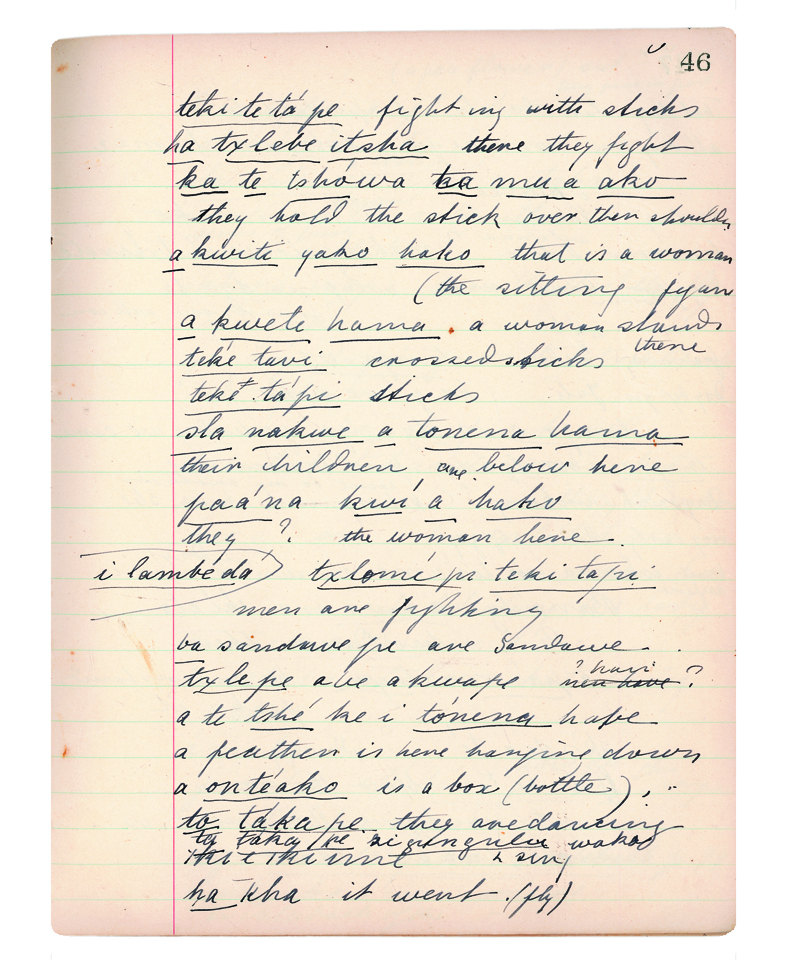 46
teki te tá pe fighting with sticks
ha txlebe itsha there they fight
ka te tshówa ka mu a ako
they hold the stick over their shoulder
a kwiti yako hako that is a woman
(the sitting figure
a kwete hama . a woman stands
there
teké tavi crossed sticks
teké tápi sticks
sla nakwe a tonena hama
their children are below here
paá na kwí a hako
they ? the woman here.
i lambéda txlomé pi teki tapi
men are fighting
ba sandawe pe are Sandawe.
txle pe are akwape ? havi ?
a te tshé ke i tónena hape
a feather is here hanging down
a ontéako is a box (bottle),
to táka pe they are dancing
ta táka pe si ungulu wakao
& sing
ha kha it went (fly)